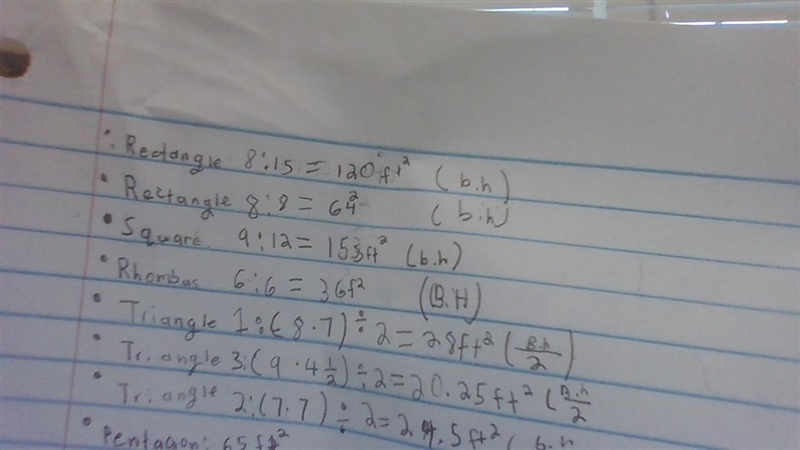 • Rectangle 8:15 = 120ft² (b.h)
• Rectangle 8:8 = 64² (b.h)
• Square 9:12 = 153ft² (b.h)
• Rhombus 6:6 = 36f² (B.H)
• Triangle 1:(8.7) ÷ 2 = 28ft² (B.h/2)
• Triangle 3:(9.4 1/2) ÷ 2 = 20.25ft² (B.h/2
• Triangle 2:(7.7) ÷ 2 = 24.5ft² ( b.h
• Pentagon: 65ft²